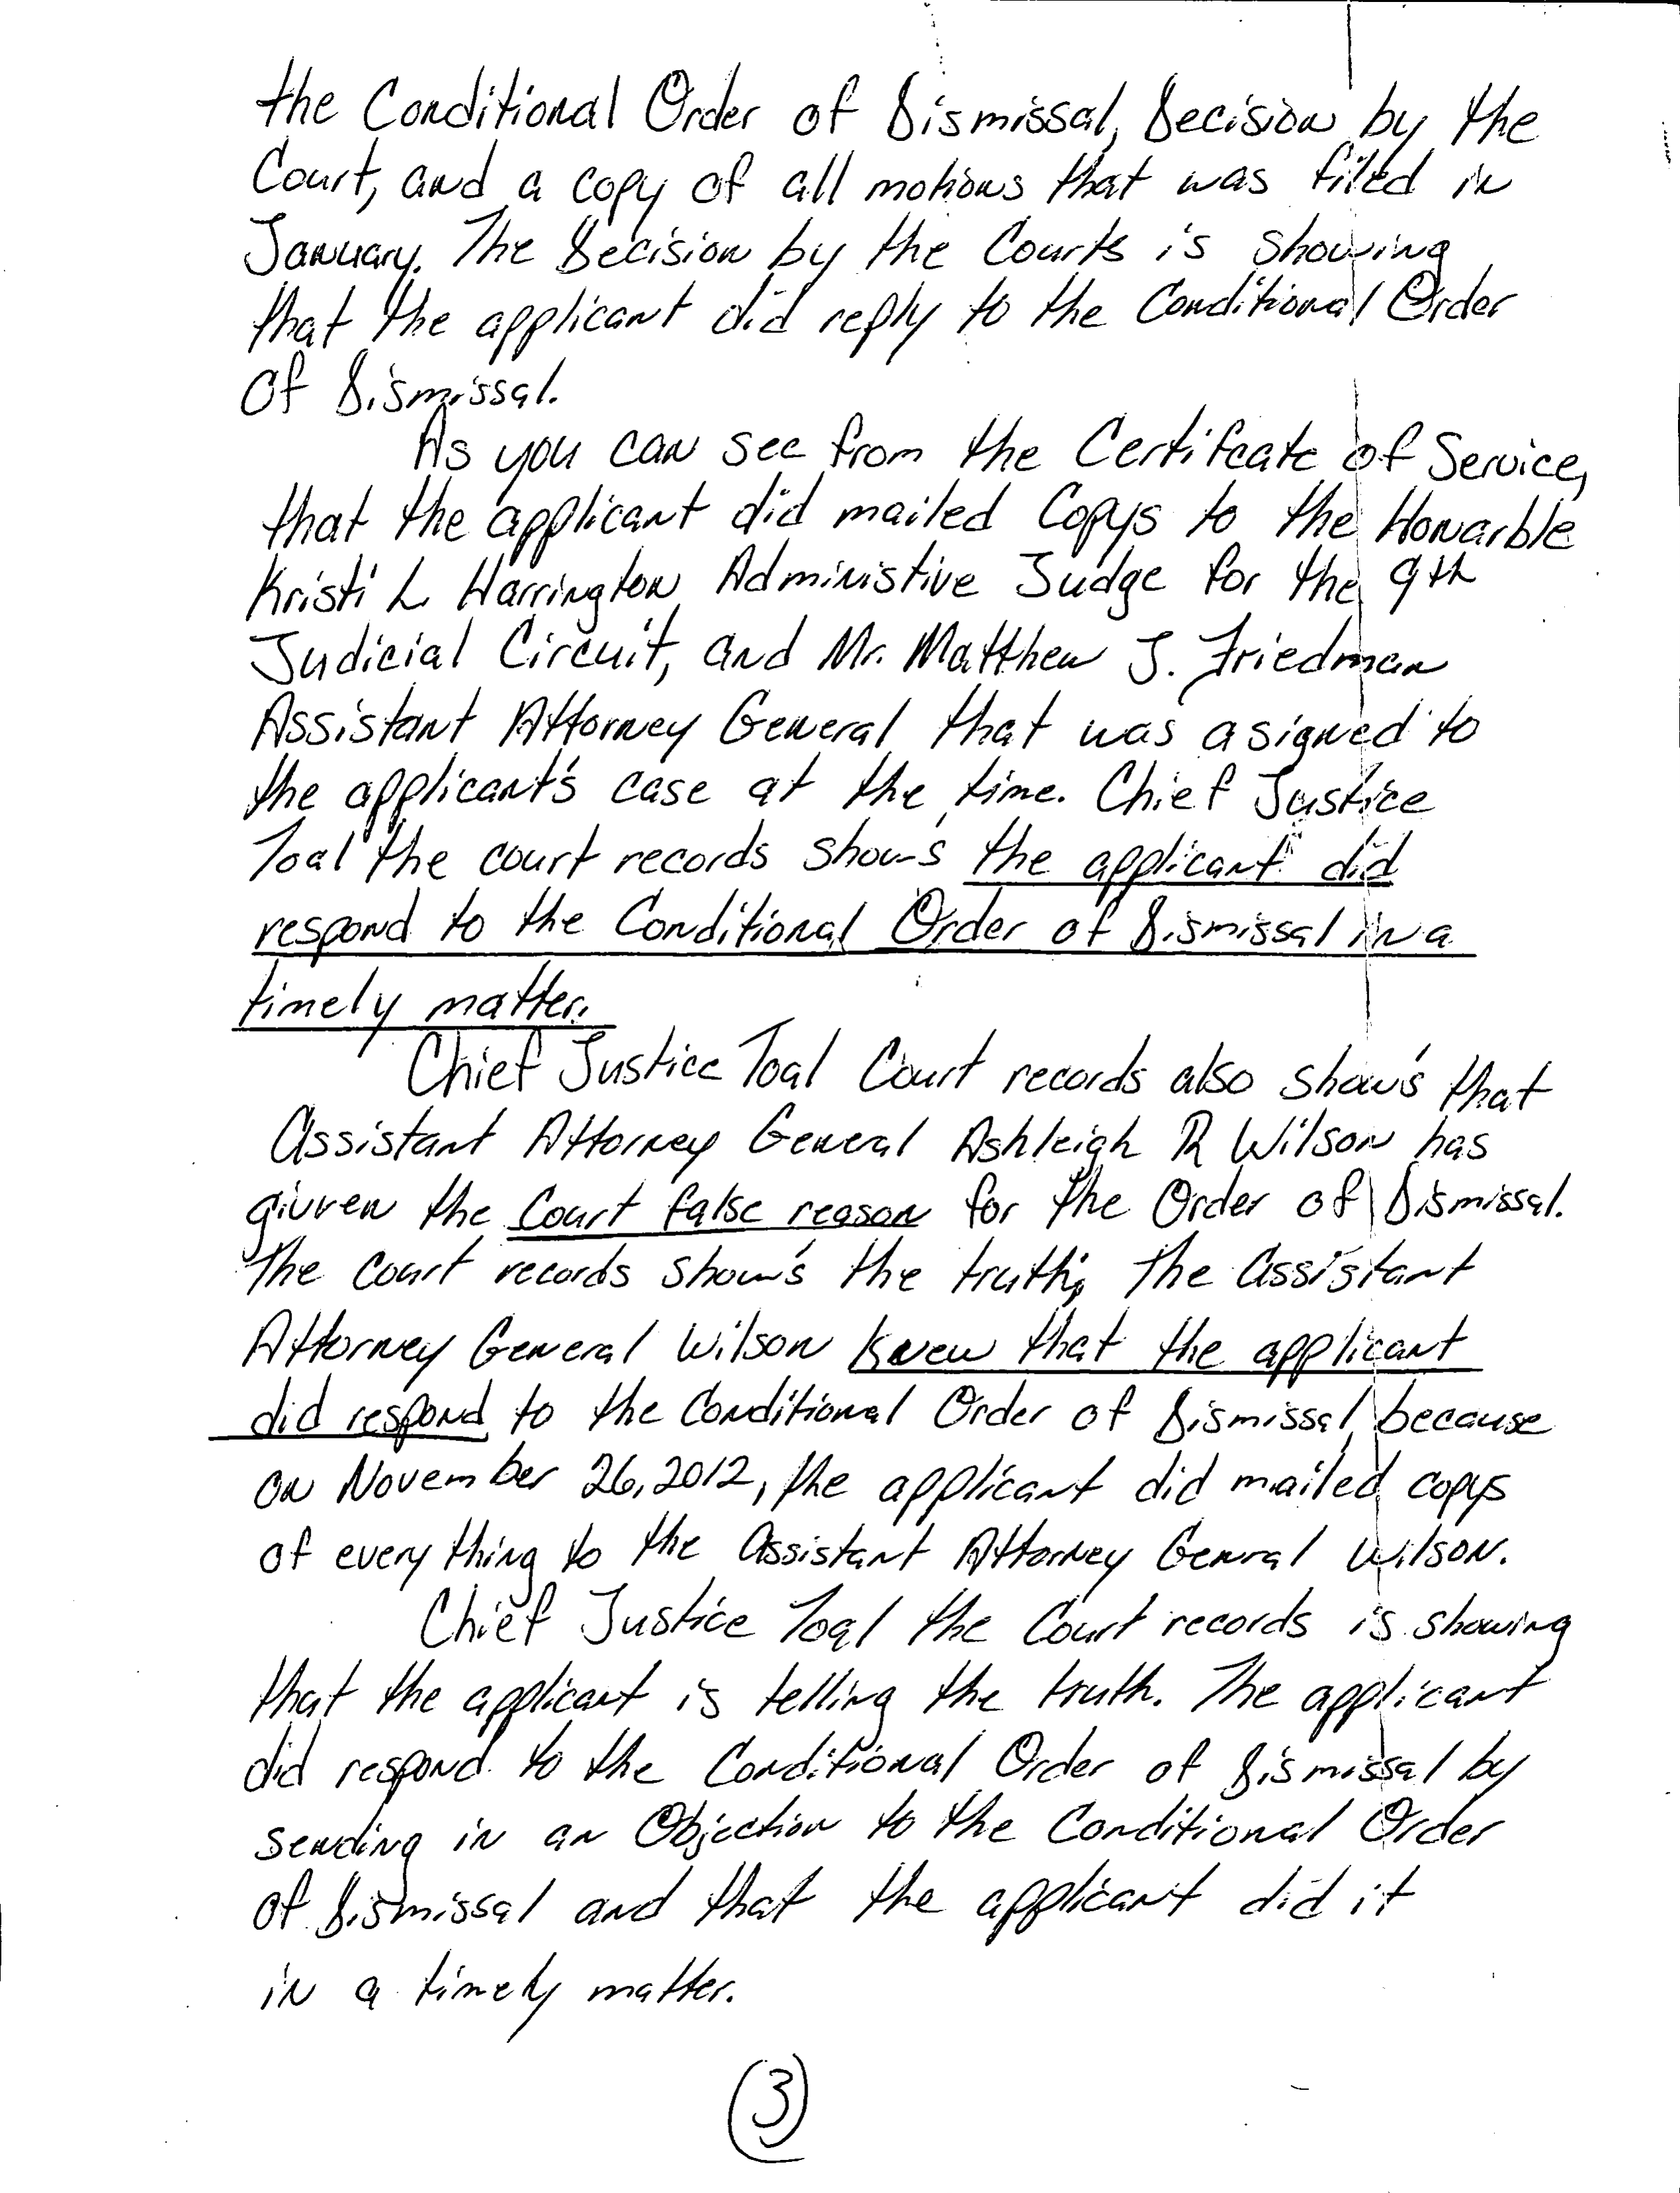 the Conditional Order of Dismissal, Decision by the
Court, and a copy of all motions that was filed in
January. The Decision by the Courts is showing
that the applicant did reply to the Conditional Order
Of Dismissal.
As you can see from the Certifcate of Service,
that the applicant did mailed Copys to the Honarble
Kristi L. Harrington Administive Judge for the 9th
Judicial Circuit, and Mr. Matthew J. Friedman
Assistant Attorney General that was asigned to
the applicant's case at the time. Chief Justice
Toal the court records show's the applicant did
respond to the Conditional Order of Dismissal in a
timely matter.
Chief Justice Toal Court records also show's that
Assistant Attorney General Ashleigh R Wilson has
givven the Court false reason for the Order of Dismissal.
The court records show's the truth; The Assistant
Attorney General Wilson knew that the applicant
did respond to the Conditional Order of Dismissal, because
on November 26, 2012, the applicant did mailed copys
of every thing to the Assistant Attorney Genral Wilson.
Chief Justice Toal the Court records is showing
that the applicant is telling the truth. The applicant
did respond to the Conditional Order of Dismissal by
sending in an Objection to the Conditional Order
of Dismissal and that the applicant did it
in a timely matter.
3